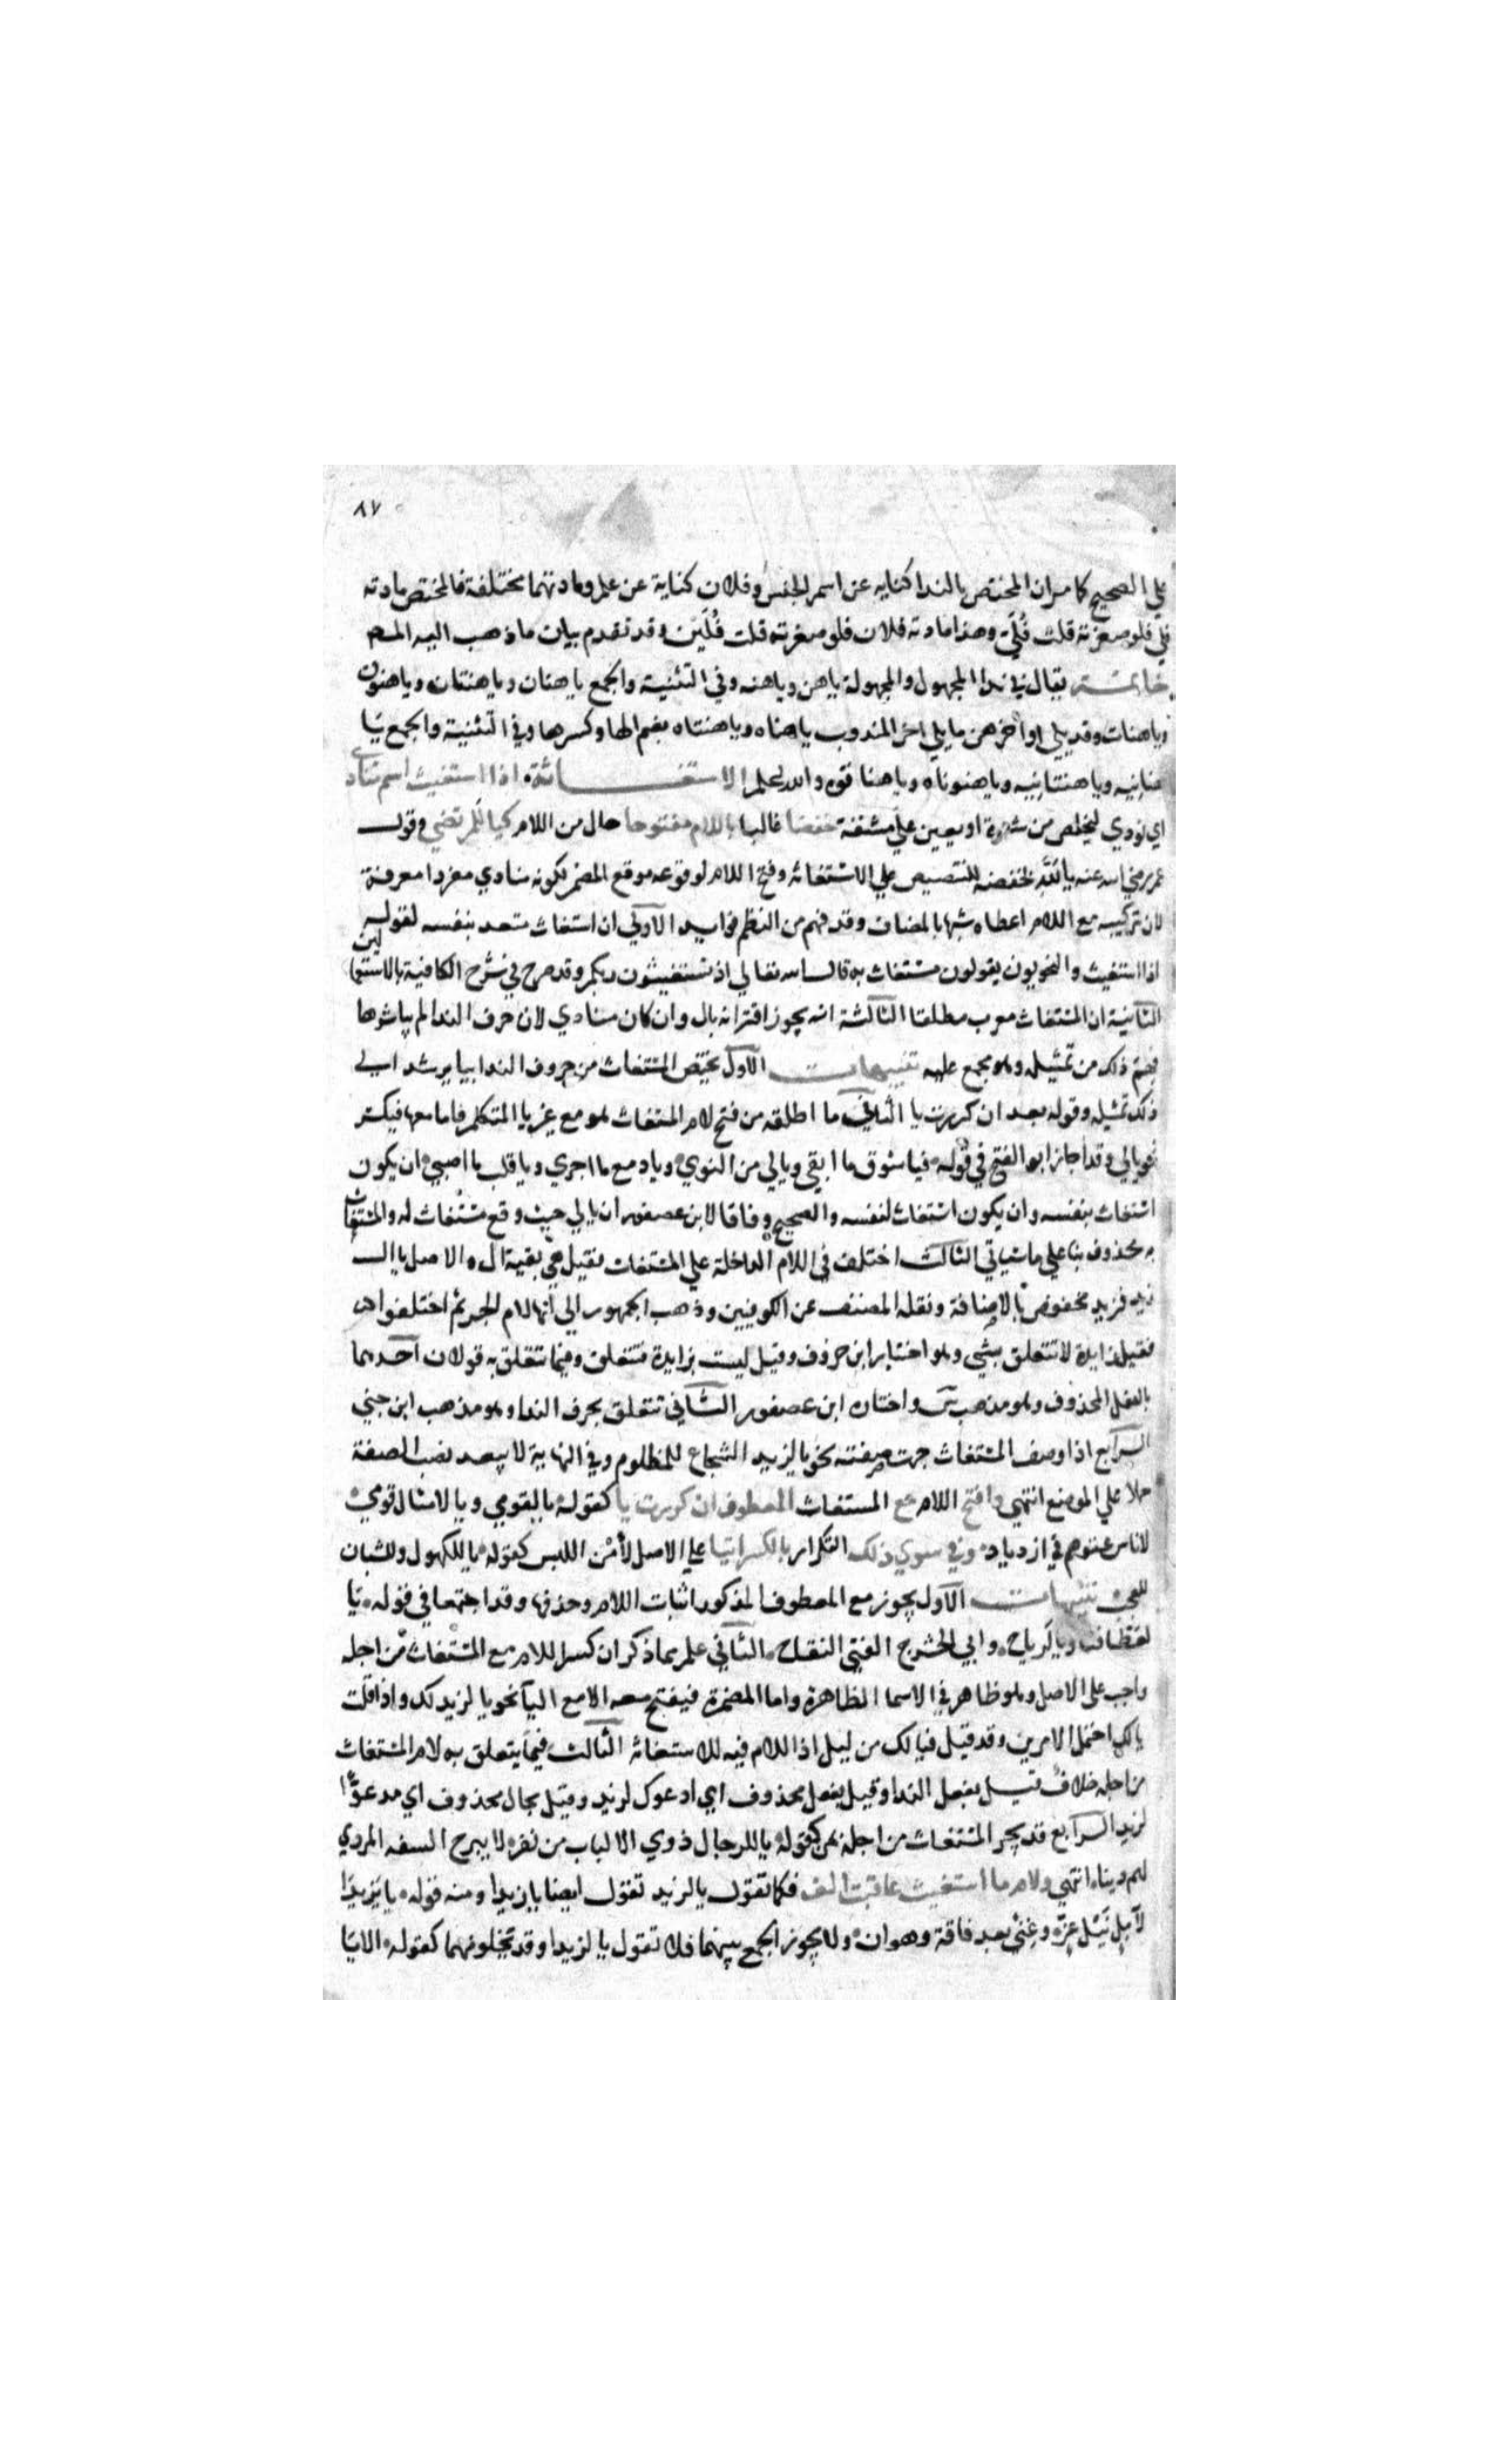 ٨٧
علي الصحيح كما مر ان المختص بالندا كنايه عن اسم الجنس وفلان كناية عن علم ومادتهما مختلفة فالمختص مادته
فلي فلو صغرته قلت فُلَيّ وهذا مادته فلان فلو صغرته قلت فُلَيِّن وقد تقدم بيان ما ذهب اليه المصـ
خاتمـــة يقال في ندا المجهول والمجهولة ياهن وياهنه وفي التثنية والجمع ياهنان وياهنتان وياهنون
وياهنات وقد يلي اواخرهن ما يلي اخر المندوب ياهناه وياهنتاه بضم الها وكسرها وفي التثنية والجمع يا
هنانيه وياهنتانيه وياهنوناه وياهناتوه والله اعلم الاستغـــاثة اذا استغيث اسم منادي
اي نودي ليخلص من شدة او يعين علي مشقة خفضا غالبا باللام مفتوحا حال من اللام كيا لَلمرتضي وقول
عمر رضي الله عنه يا لَلّهِ فخفضه للتنصيص علي الاستغاثة وفتح اللام لوقوعه موقع المضمر لكونه منادي مفردا معرفة
لان تركيبه مع اللام اعطاه شبها بالمضاف وقد فهم من النظم فوايد الاولي ان استغاث متعد بنفسه لقوله
اذا استغيث والنحويون يقولون مستغاث به قال الله تعالي اذ تستغيثون ربكم وقد صرح في شرح الكافية بالاستعمالين
الثانية ان المستغاث معرب مطلقا الثالثة انه يجوز اقترانه بال وان كان منادي لان حرف الندا لم يباشرها
فهم ذلك من تمثيله وهو مجمع عليه تنبيهات الاول يختص المستغاث من حروف الندا بيا يرشد الي
ذلك تمثيله وقوله بعد ان كررت يا الثاني ما اطلقه من فتح لام المستغاث هو مع غير يا المتكلم فاما معها فيكسر
نحو يالي وقد اجاز ابو الفتح في قوله فيا شوق ما ابقي ويالي من النوي ويا دمع ما اجري ويا قلب ما اصبي ان يكون
استغاث بنفسه وان يكون استغاث لنفسه والصحيح وفاقا لابن عصفور ان يا لي حيث وقع مستغاث له والمستغاث
به محذوف بنا علي ما سياتي الثالث اختلف في اللام الداخلة علي المستغاث فقيل هي بقية ال والاصل يا ال
زيد فزيد مخفوض بالاضافة ونقله المصنف عن الكوفيين وذهب الجمهور الي انها لام الجر ثم اختلفوا
فقيل زايدة لا تتعلق بشي وهو اختيار ابن خروف وقيل ليست بزايدة فتتعلق وفيما تتعلق به قولان احدهما
بالفعل المحذوف وهو مذهب س واختاره ابن عصفور الثاني تتعلق بحرف الندا وهو مذهب ابن جني
الرابع اذا وصف المستغاث جرت صفته نحو يا لزيد الشجاع للمظلوم وفي النهاية لا يبعد نصب الصفة
حملا علي الموضع انتهي وافتح اللام مع المستغاث المعطوف ان كررت يا كقوله يا لقومي ويا لامثال قومي
لاناس عتوهم في ازدياد وفي سوي ذلك التكرار بالكسر ايتيا علي الاصل لأمْن اللبس كقوله يا للكهول وللشبان
للعجب تنبيهات الاول يجوز مع المعطوف المذكور اثبات اللام وحذفها وقد اجتمعا في قوله يا
لعطافنا ويا لرياح وابي الحشرج الفتي النفاح الثاني علم مما ذكر ان كسر اللام مع المستغاث من اجله
واجب علي الاصل وهو ظاهر في الاسما الظاهرة واما المضمرة فيفتح معه الا مع اليا نحو يا لزيد لك واذا قلت
يا لك احتمل الامرين وقد قيل فيا لك من ليل اذ اللام فيه للاستغاثه الثالث فيما يتعلق به لام المستغاث
من اجله خلاف فقيل بفعل الندا وقيل بفعل محذوف اي ادعوك لزيد وقيل بحال محذوف اي مدعوًّا
لزيد الرابع قد يجر المستغاث من اجله بمن كقوله يا للرجال ذوي الالباب من نفر لا يبرح السفه المردي
لهم دينا انتهي ولام ما استغيث عاقبت الف فكما تقول يا لزيد تقول ايضا يا زيدا ومنه قوله يا يزيدا
لآمِلٍ نَيْلَ عِزّ وغِنًي بعد فاقة وهوان ولا يجوز الجمع بينهما فلا تقول يا لزيدا وقد تخلو منهما كقوله الا يا